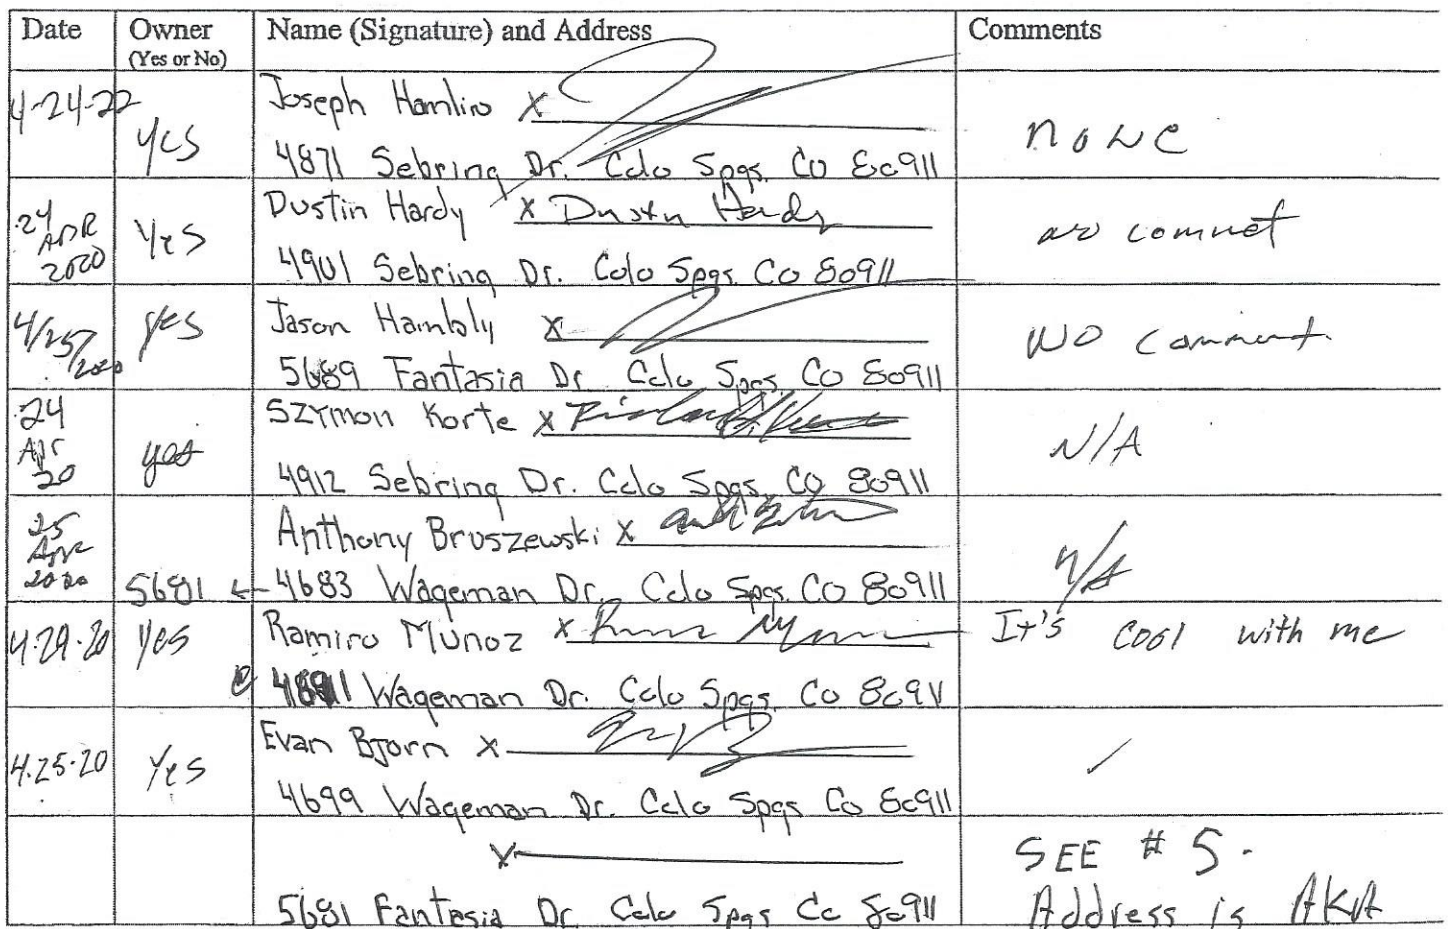 Date Owner (Yes or No) Name (Signature) and Address Comments
4-24-20 yes Joseph Hamlin x none
4871 Sebring Dr. Colo Spgs. Co 80911
24 APR 2020 Yes Dustin Hardy x Dustn Hardy no commet
4901 Sebring Dr. Colo Spgs. Co 80911
4/25/2020 yes Jason Hambly x No comment.
5689 Fantasia Dr Colo Spgs Co 80911
24 Apr 20 yes Szymon Korte x N/A
4912 Sebring Dr. Colo Spgs, Co 80911
25 Apr 2020 Anthony Bruszewski x n/a
5681 ← 4683 Wageman Dr. Colo Spgs. Co 80911
4-29-20 Yes Ramiro Munoz x It's cool with me
Wageman Dr. Colo Spgs. Co 80911
4.25.20 Yes Evan Bjorn x ✓
4699 Wageman Dr. Colo Spgs Co 80911
x SEE # 5.
5681 Fantasia Dr Colo Spgs Co 80911 Address is AKA